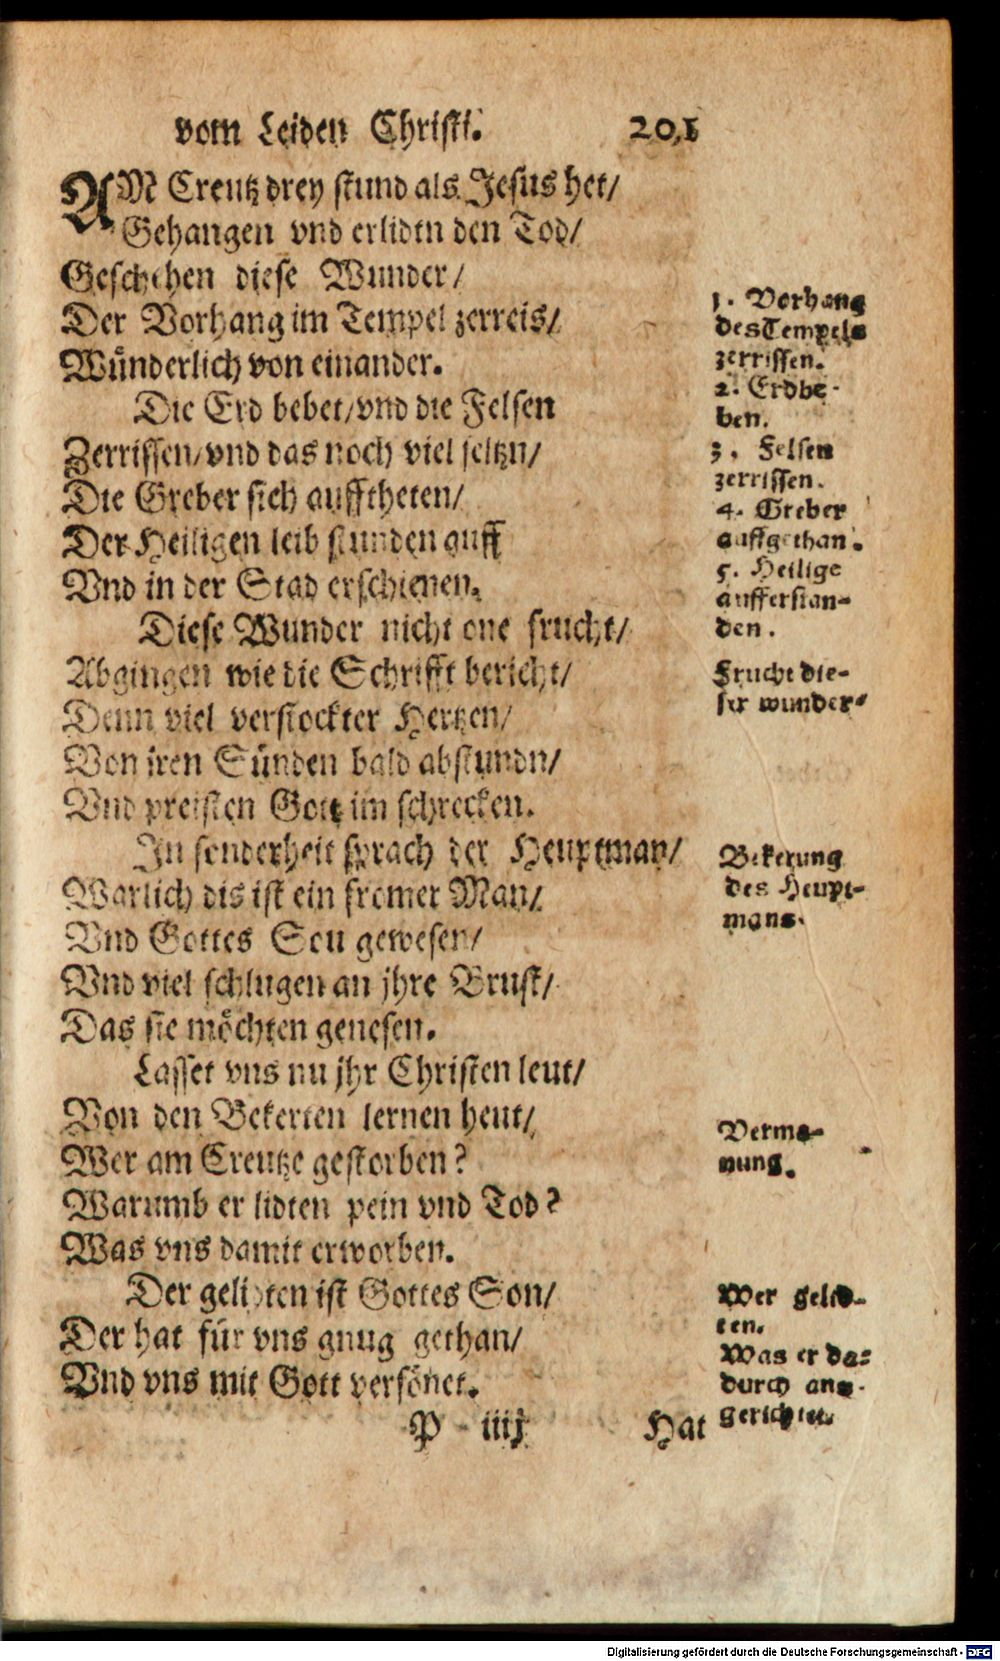 vom Leiden Christi. 201
AM Creutz drey stund als Jesus het/
Gehangen vnd erlidtn den Tod/
Geschehen diese Wunder/
Der Vorhang im Tempel zerreis/
Wünderlich von einander.
Die Erd bebet/vnd die Felsen
Zerrissen/vnd das noch viel seltzn/
Die Greber sich aufftheten/
Der Heiligen leib stunden auff
Vnd in der Stad erschienen.
Diese Wunder nicht one frucht/
Abgingen wie die Schrifft bericht/
Denn viel verstockter Hertzen/
Von jren Sünden bald abstundn/
Vnd preisten Gott im schrecken.
In sonderheit sprach der Heuptman/
Warlich dis ist ein fromer Man/
Vnd Gottes Son gewesen/
Vnd viel schlugen an jhre Brust/
Das sie möchten genesen.
Lasset vns nu jhr Christen leut/
Von den Bekerten lernen heut/
Wer am Creutze gestorben?
Warumb er lidten pein vnd Tod?
Was vns damit erworben.
Der gelidten ist Gottes Son/
Der hat für vns gnug gethan/
Vnd vns mit Gott versönet.
P iiij Hat
1. Vorhang
des Tempels
zerrissen.
2. Erdbe-
ben.
3. Felsen
zerrissen.
4. Greber
auffgethan.
5. Heilige
aufferstan-
den.
Frucht die-
ser wunder-
Bekerung
des Heupt-
mans.
Verma-
nung.
Wer gelid-
ten.
Was er da-
durch aus-
gerichtet.
Digitalisierung gefördert durch die Deutsche Forschungsgemeinschaft - DFG